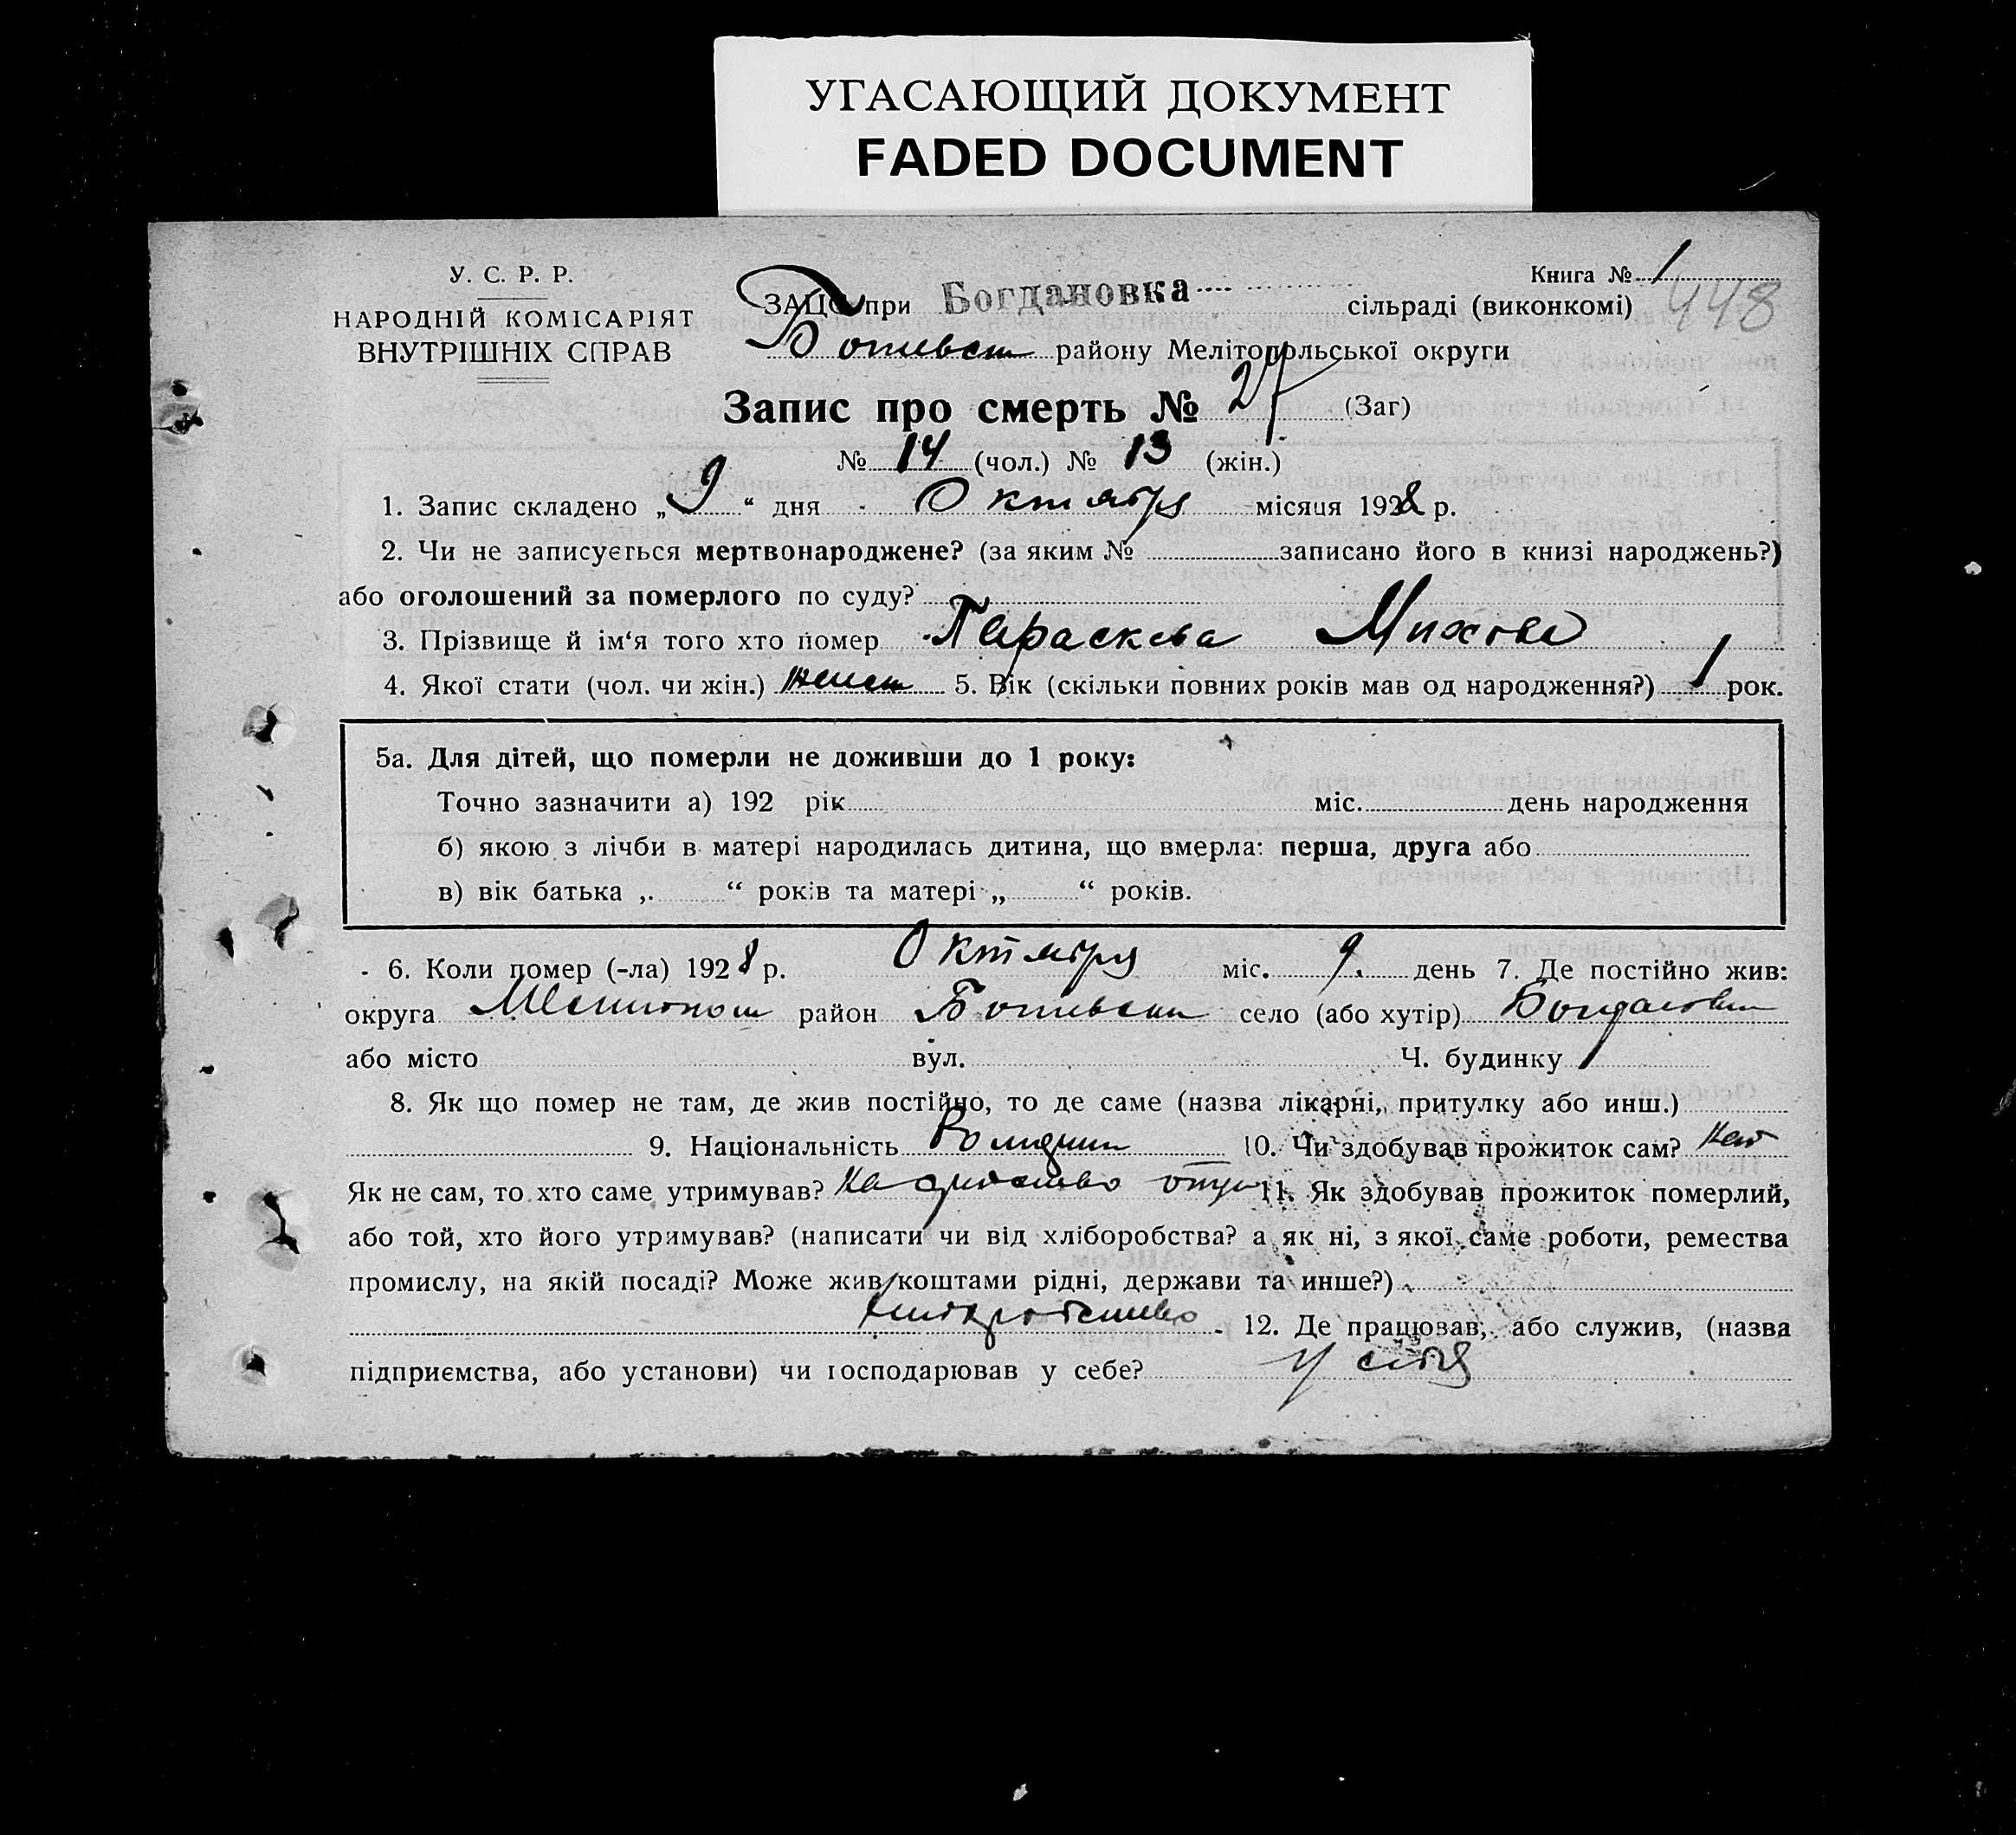 УГАСАЮЩИЙ ДОКУМЕНТ
FADED DOCUMENT
У. С. Р. Р.
НАРОДНІЙ КОМІСАРІЯТ
ВНУТРІШНІХ СПРАВ
Книга № 1
448
ЗАЦС при Богдановка сільраді (виконкомі)
Ботиевск району Мелітопольської округи
Запис про смерть № 27 (Заг)
№ 14 (чол.) № 13 (жін.)
1. Запис складено „ 9 “ дня Октября місяця 1928 р.
2. Чи не записується мертвонароджене? (за яким № записано його в книзі народжень?)
або оголошений за померлого по суду?
3. Прізвище й ім‘я того хто помер Параскева
4. Якої стати (чол. чи жін.) женск 5. Вік (скільки повних років мав од народження?) 1 рок.
5а. Для дітей, що померли не доживши до 1 року:
Точно зазначити а) 192 рік міс. день народження
б) якою з лічби в матері народилась дитина, що вмерла: перша, друга або
в) вік батька „ “ років та матері „ “ років.
6. Коли помер (-ла) 1928 р. Октября міс. 9. день 7. Де постійно жив:
округа Мелитопол район Ботиевски село (або хутір) Богдановка
або місто вул. Ч. будинку
8. Як що помер не там, де жив постійно, то де саме (назва лікарні, притулку або инш.)
9. Національність 10. Чи здобував прожиток сам? нет
Як не сам, то хто саме утримував? на средства отца 11. Як здобував прожиток померлий,
або той, хто його утримував? (написати чи від хліборобства? а як ні, з якої саме роботи, ремества
промислу, на якій посаді? Може жив коштами рідні, держави та инше?)
хлібробство 12. Де працював, або служив, (назва
підприємства, або установи) чи господарював у себе? у себя